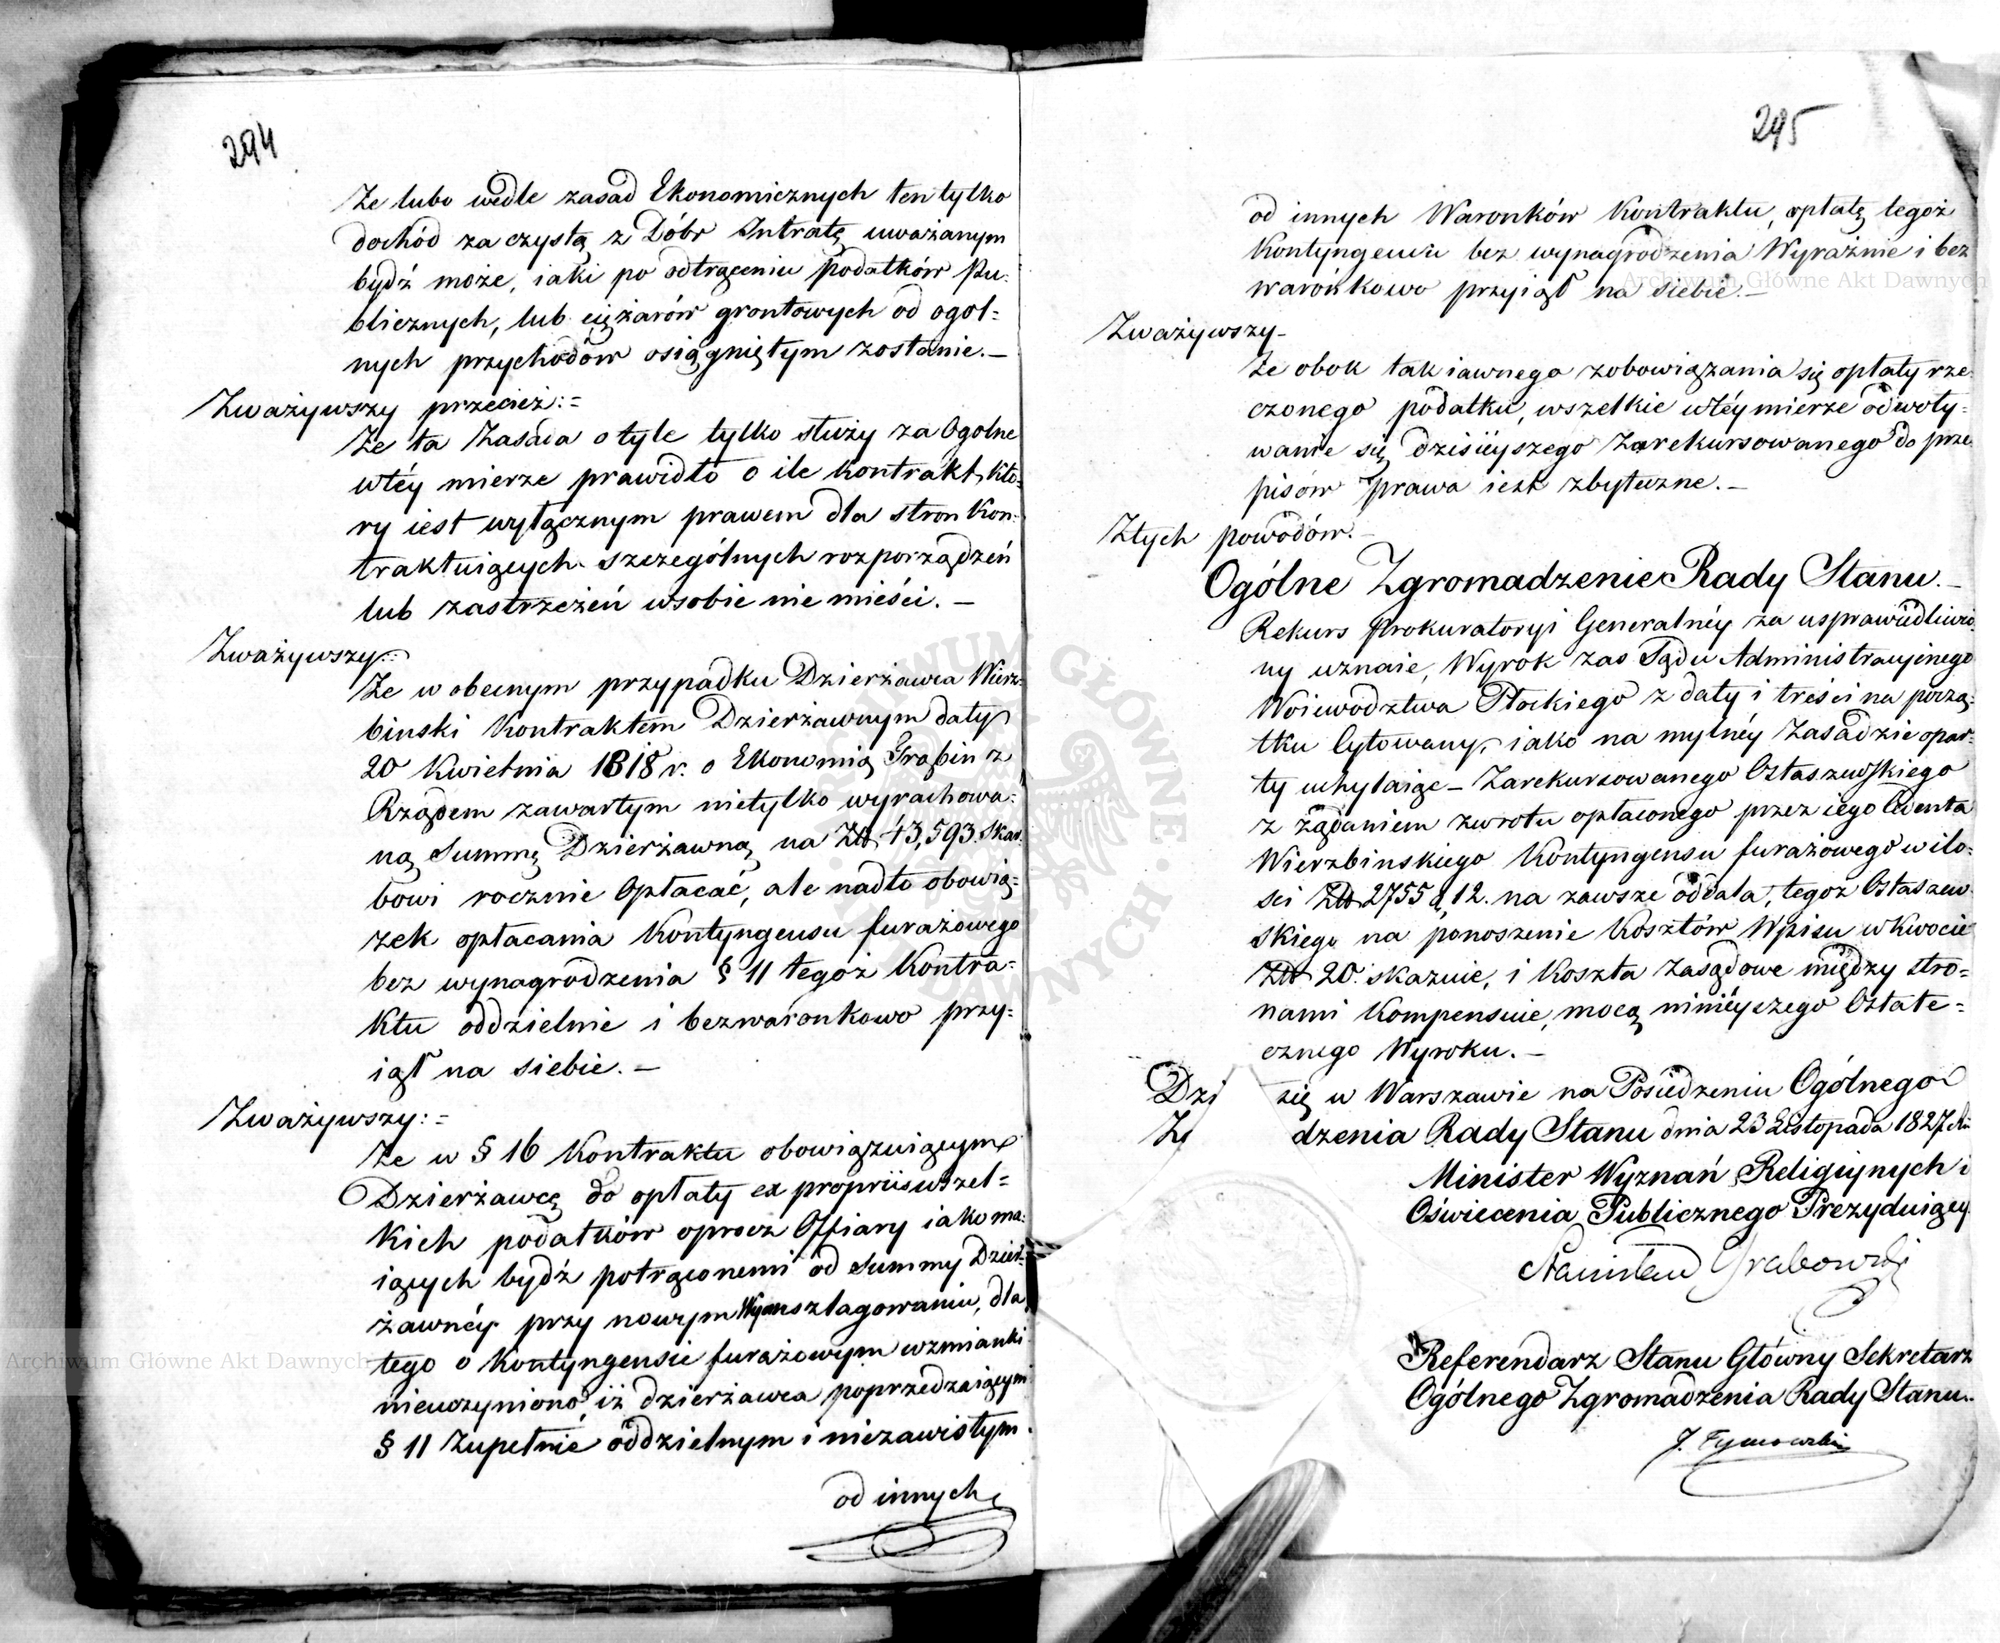 294
Że lubo wedle zasad Ekonomicznych ten tylko
dochód za czystą z Dóbr Intratę uważanym
bydź może, iaki po odtrąceniu podatków Pu-
blicznych, lub ciężarów grontowych od ogol-
nych przychodów osiągniętym zostanie.—
Zważywszy przecież:=
Że ta Zasada o tyle tylko służy za Ogolne
wtéy mierze prawidło o ile kontrakt, któ-
ry iest wyłącznym prawem dla stron kon-
traktuiących szczególnych rozporządzeń
lub zastrzeżeń wsobie nie mieści.—
Zważywszy:=
Że w obecnym przypadku Dzierżawca Wierz-
binski Kontraktem Dzierżawnym daty
20 Kwietnia 1818 r. o Ekonomią Grabin z
Rządem zawartym nietylko wyrachowa-
ną Summę Dzierżawną na Złt 43,593. Skar-
bowi rocznie Opłacać, ale nadto obowią-
zek opłacania Kontyngensu furażowego
bez wynagrodzenia § 11 tegoż Kontra-
ktu oddzielnie i bezwaronkowo przy-
iął na siebie.—
Zważywszy:=
Że w § 16 Kontraktu obowiązuiącym
Dzierżawcę do opłaty ex propriis wszel-
kich podatków oprocz Offiary iako ma-
iących bydź potrąconemi od Summy Dzier-
żawnéy przy nowym Wyansztagowaniu, dla
tego o Kontyngensie furażowym wzmianki
nieuczyniono, iż dzierżawca poprzedzaiącym
§ 11 Zupełnie oddzielnym i niezawisłym
od innych
295
od innych Waronków Kontraktu, opłatę tegoż
Kontyngensu bez wynagrodzenia Wyraźnie i bez
waronkowo przyiął na siebie.—
Zważywszy—
Że obok tak iawnego zobowiązania się opłaty rze-
czonego podatku, wszelkie wtéy mierze odwoły-
wanie się dzisieyszego Zarekursowanego do prze-
pisów prawa iest zbyteczne.—
Ztych powodów.—
Ogólne Zgromadzenie Rady Stanu.—
Rekurs Prokuratoryi Generalnéy za usprawiedliwio-
ny uznaie, Wyrok zas Sądu Administracyinego
Woiewodztwa Płockiego z daty i treści na począ-
tku Cytowany, iako na mylnéy Zasadzie opar-
ty uchylaiąc — Zarekursowanego Ostaszewskiego
z żądaniem zwrotu opłaconego przez iego Cedenta
Wierzbinskiego Kontyngensu furażowego w ilo-
sci Złt 2755 g. 12. na zawsze oddala, tegoż Ostaszew-
skiego na ponoszenie Kosztów Wpisu w kwocie
Złt 20. skazuie, i Koszta Zasądowe między stro-
nami Kompensuie, mocą ninieyszego Ostate-
cznego Wyroku.—
Dzi się w Warszawie na Posiedzeniu Ogólnego
Zg dzenia Rady Stanu dnia 23 Listopada 1827
Minister Wyznań Religiynych i
Oświecenia Publicznego Prezyduiący
Stanisław Grabowski
Referendarz Stanu Główny Sekretarz
Ogólnego Zgromadzenia Rady Stanu.
J. Tymowski
Archiwum Główne Akt Dawnych
Archiwum Główne Akt Dawnych
ARCHIWUM GŁÓWNE AKT DAWNYCH